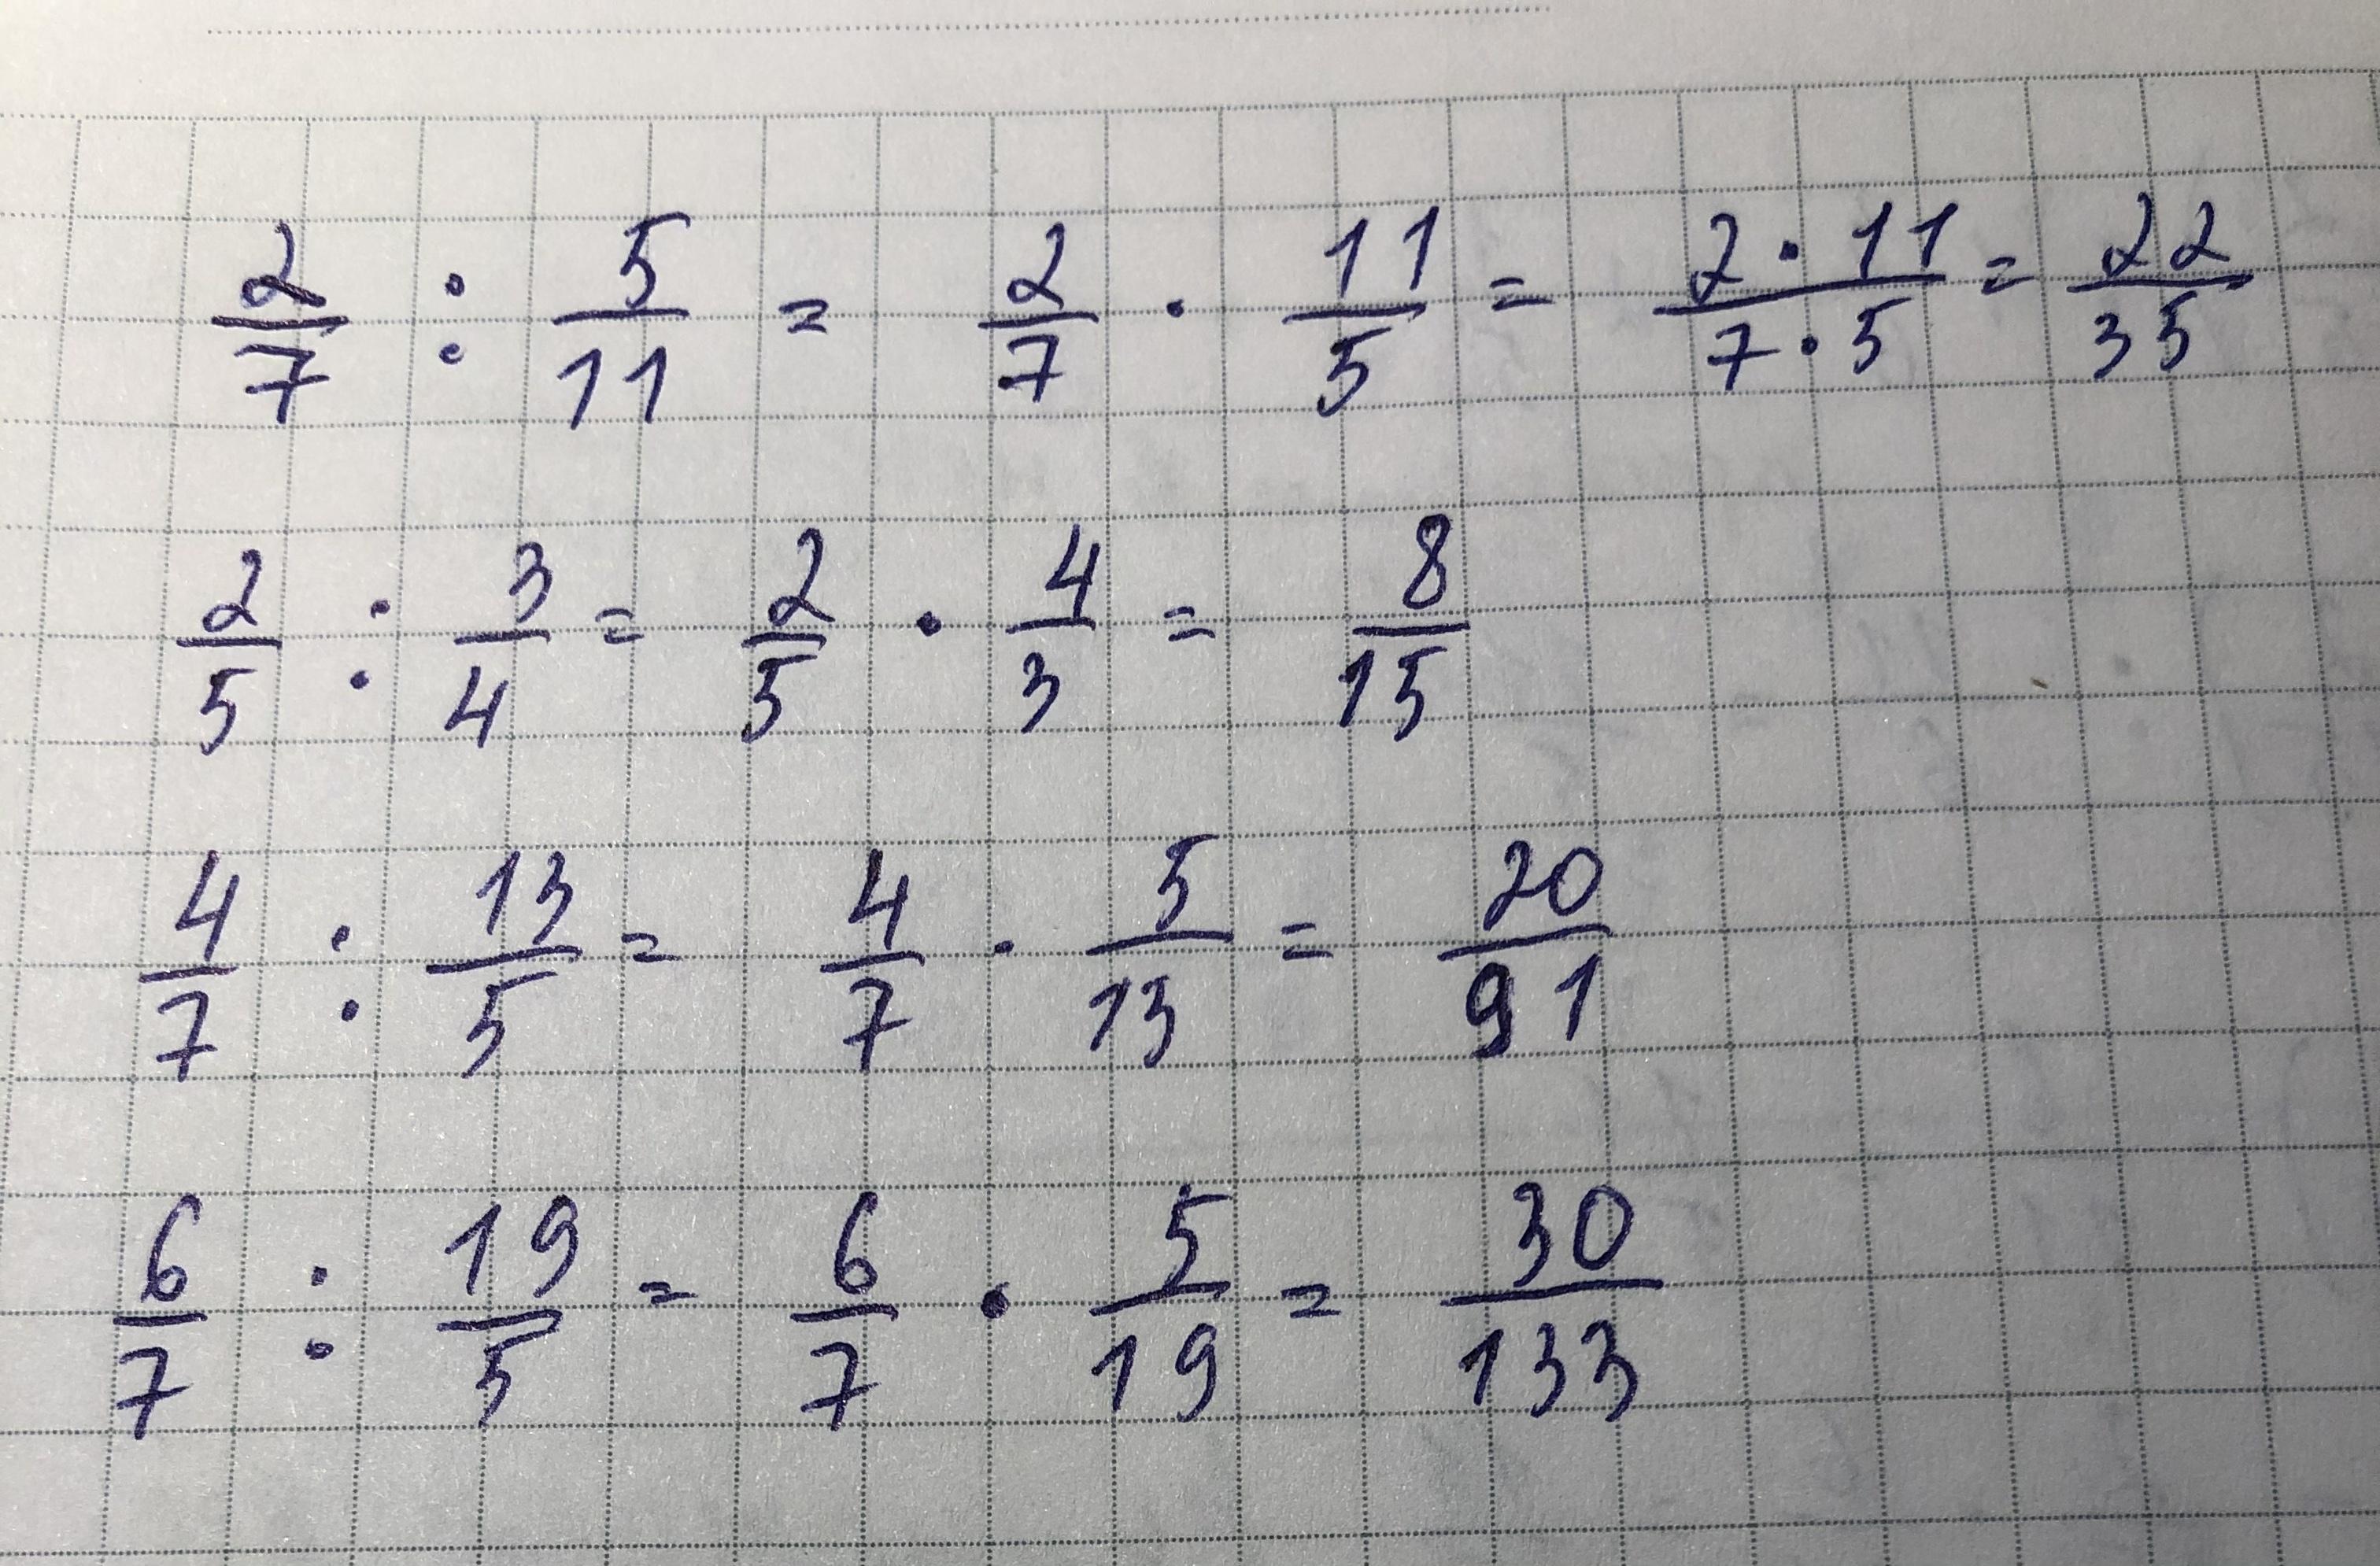 2/7 : 5/11 = 2/7 · 11/5 = 2 · 11 / 7 · 5 = 22/35
2/5 : 3/4 = 2/5 · 4/3 = 8/15
4/7 : 13/5 = 4/7 · 5/13 = 20/91
6/7 : 19/5 = 6/7 · 5/19 = 30/133